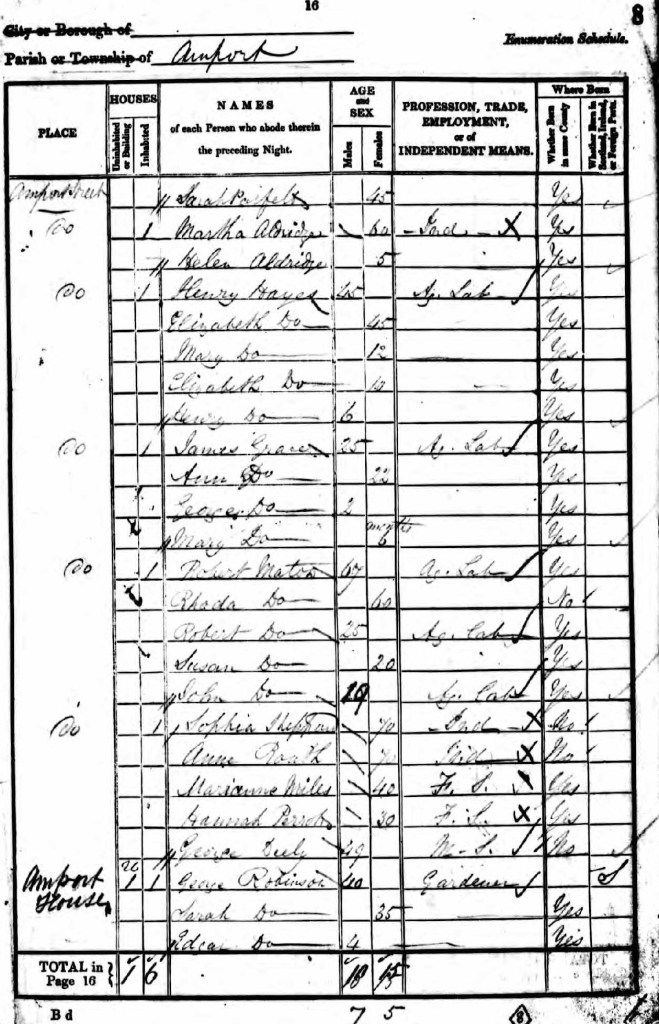 16
8
City or Borough of
Parish or Township of Amport
Enumeration Schedule.
PLACE
HOUSES
Uninhabited or Building
Inhabited
NAMES
of each Person who abode therein
the preceding Night.
AGE
and
SEX
Males
Females
PROFESSION, TRADE,
EMPLOYMENT,
or of
INDEPENDENT MEANS.
Where Born
Whether Born in same County
Whether Born in Scotland, Ireland, or Foreign Parts.
Amport Street Sarah 45 Yes
Do 1 Martha Aldridge 60 Ind Yes
Helen Aldridge 5 Yes
Do 1 Henry Hayes 45 Ag. Lab Yes
Elizabeth Do 45 Yes
Mary Do 12 Yes
Elizabeth Do 10 Yes
Henry Do 6 Yes
Do 1 James Grace 25 Ag. Lab Yes
Ann Do 22 Yes
George Do 2 Yes
Mary Do 6 months Yes
Do 1 Robert 67 Ag. Lab Yes
Rhoda Do 60 No
Robert Do 25 Ag. Lab Yes
Susan Do 20 Yes
John Do 19 Ag. Lab Yes
Do 1 Sophia 70 Ind No
Anne 70 Ind No
Marianne Miles 40 F. S. Yes
Hannah 30 F. S. Yes
George 49 M. S. No
Amport House 1 1 George Robinson 40 Gardener S
Sarah Do 35 Yes
Edgar Do 4 Yes
TOTAL in
Page 16
1 6 15
B d
7 5
8